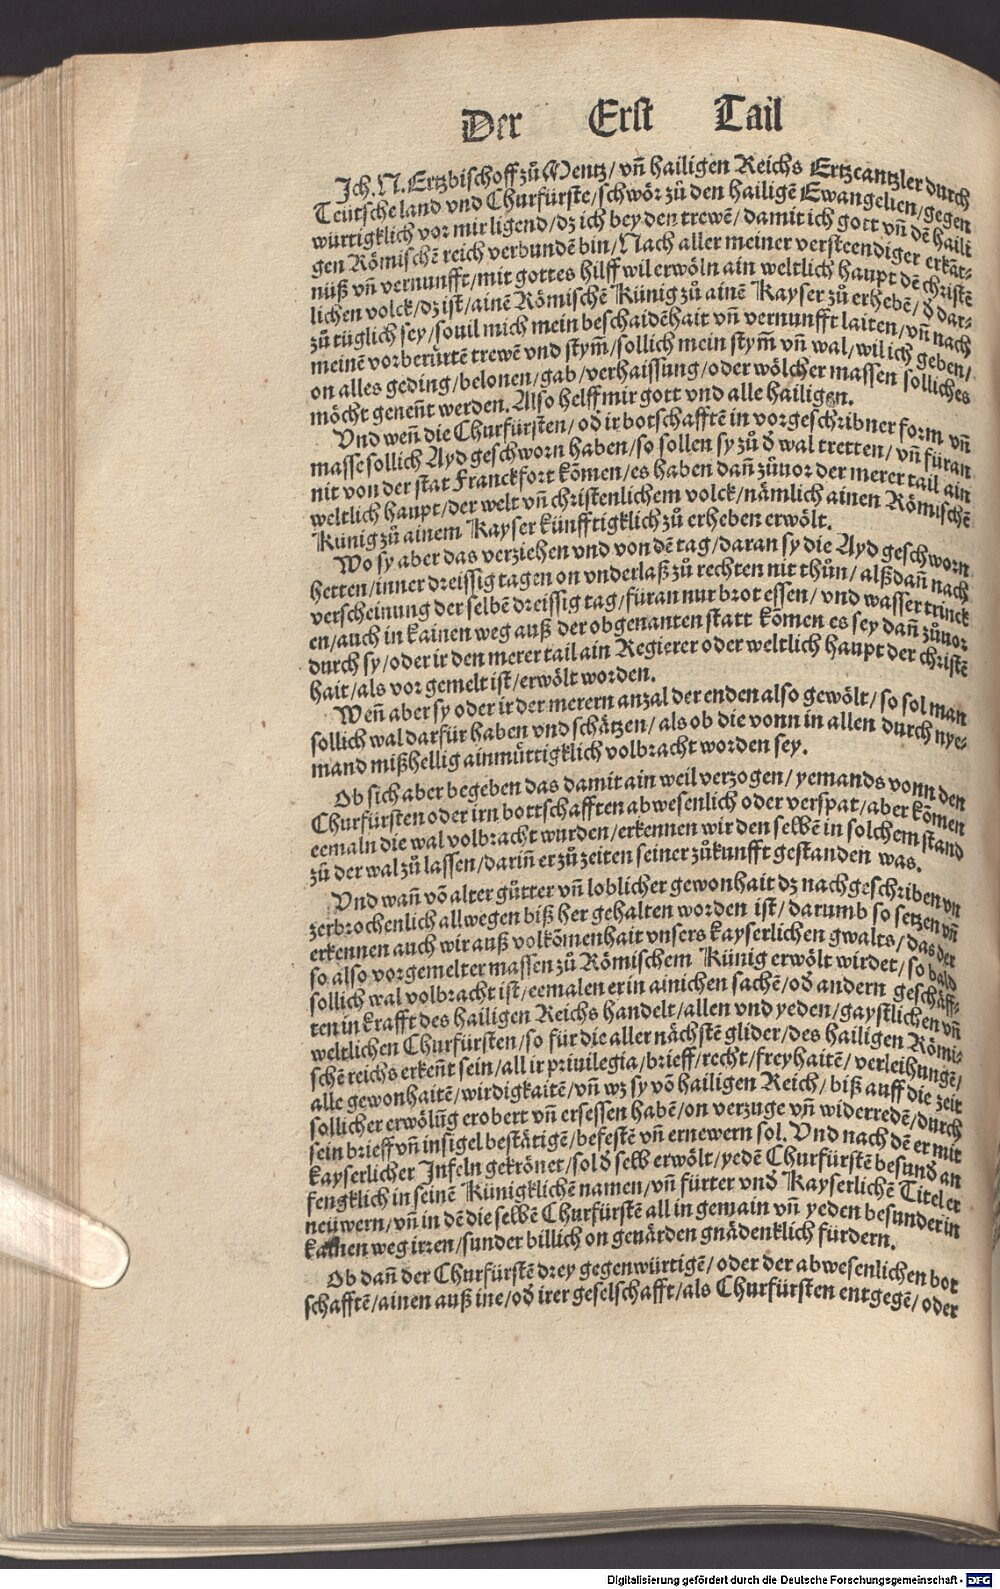 Der Erst Tail
Ich. N. Ertzbischoff zů Mentz/ vñ hailigen Reichs Ertzcantzler durch
Teütsche land vnd Churfürste/ schwör zů den hailigẽ Ewangelien/ gegen
würtigklich vor mir ligend/ dz ich bey den trewẽ/ damit ich gott vñ dẽ haili
gen Römischẽ reich verbundẽ bin/ Nach aller meiner versteendiger erkãt⸗
nüß vñ vernunfft/ mit gottes hilff wil erwöln ain weltlich haupt dẽ christẽ
lichen volck/ dz ist/ ainẽ Römischẽ Künig zů ainẽ Kayser zů erhebẽ/ d̕ dar⸗
zů tüglich sey/ souil mich mein beschaidẽhait vñ vernunfft laiten/ vñ nach
meinẽ vorberürtẽ trewẽ vnd stym̃/ sollich mein stym̃ vñ wal/ wil ich geben/
on alles geding/ belonen/ gab/ verhaissung/ oder wölcher massen solliches
möcht geneñt werden. Also helff mir gott vnd alle hailigen.
Vnd weñ die Churfürsten/ od̕ ir botschafftẽ in vorgeschribner form vñ
masse sollich Ayd geschworn haben/ so sollen sy zů d̕ wal tretten/ vñ füran
nit von der stat Franckfort kõmen/ es haben dañ zůuor der merer tail ain
weltlich haupt/ der welt vñ christenlichem volck/ nämlich ainen Römischẽ
Künig zů ainem Kayser künfftigklich zů erheben erwölt.
Wo sy aber das verziehen vnd von dẽ tag/ daran sy die Ayd geschworn
hetten/ inner dreissig tagen on vnderlaß zů rechten nit thůn/ alßdañ nach
verscheinung der selbẽ dreissig tag/ füran nur brot essen/ vnd wasser trinck
en/ auch in kainen weg auß der obgenanten statt kõmen es sey dañ zůuor
durch sy/ oder ir den merer tail ain Regierer oder weltlich haupt der christẽ
hait/ als vor gemelt ist/ erwölt worden.
Weñ aber sy oder ir der merern anzal der enden also gewölt/ so sol man
sollich wal darfür haben vnd schätzen/ als ob die vonn in allen durch nye⸗
mand mißhellig ainmüttigklich volbracht worden sey.
Ob sich aber begeben das damit ain weil verzogen/ yemands vonn den
Churfürsten oder irn bottschafften abwesenlich oder verspat/ aber kõmen
eemaln die wal volbracht wurden/ erkennen wir den selbẽ in solchem stand
zů der wal zů lassen/ dariñ er zů zeiten seiner zůkunfft gestanden was.
Vnd wañ võ alter gůtter vñ loblicher gewonhait dz nachgeschriben vn
zerbrochenlich allwegen biß her gehalten worden ist/ darumb so setzen vñ
erkennen auch wir auß volkõmenhait vnsers kayserlichen gwalts/ das der
so also vorgemelter massen zů Römischem Künig erwölt wirdet/ so bald
sollich wal volbracht ist/ eemalen er in ainichen sachẽ/ od̕ andern geschäff⸗
ten in krafft des hailigen Reichs handelt/ allen vnd yeden/ gaystlichen vñ
weltlichen Churfürsten/ so für die aller nächstẽ glider/ des hailigen Römi⸗
schẽ reichs erkeñt sein/ all ir priuilegia/ brieff/ recht/ freyhaitẽ/ verleihungẽ/
alle gewonhaitẽ/ wirdigkaitẽ/ vñ wz sy võ hailigen Reich/ biß auff die zeit
sollicher erwölũg erobert vñ ersessen habẽ/ on verzuge vñ widerredẽ/ durch
sein brieff vñ insigel bestätigẽ/ befestẽ vñ ernewern sol. Vnd nach dẽ er mit
kayserlicher Infeln gekrönet/ sol d̕ selb erwölt/ yedẽ Churfürstẽ besund̕ an
fengklich in seinẽ Künigklichẽ namen/ vñ fürter vnd̕ Kayserlichẽ Titel er
neüwern/ vñ in dẽ die selbẽ Churfürstẽ all in gemain vñ yeden besunder in
kainen weg irren/ sunder billich on geuärden gnädenklich fürdern.
Ob dañ der Churfürstẽ drey gegenwürtigẽ/ oder der abwesenlichen bot
schafftẽ/ ainen auß ine/ od̕ irer geselschafft/ als Churfürsten entgegẽ/ oder
Digitalisierung gefördert durch die Deutsche Forschungsgemeinschaft - DFG